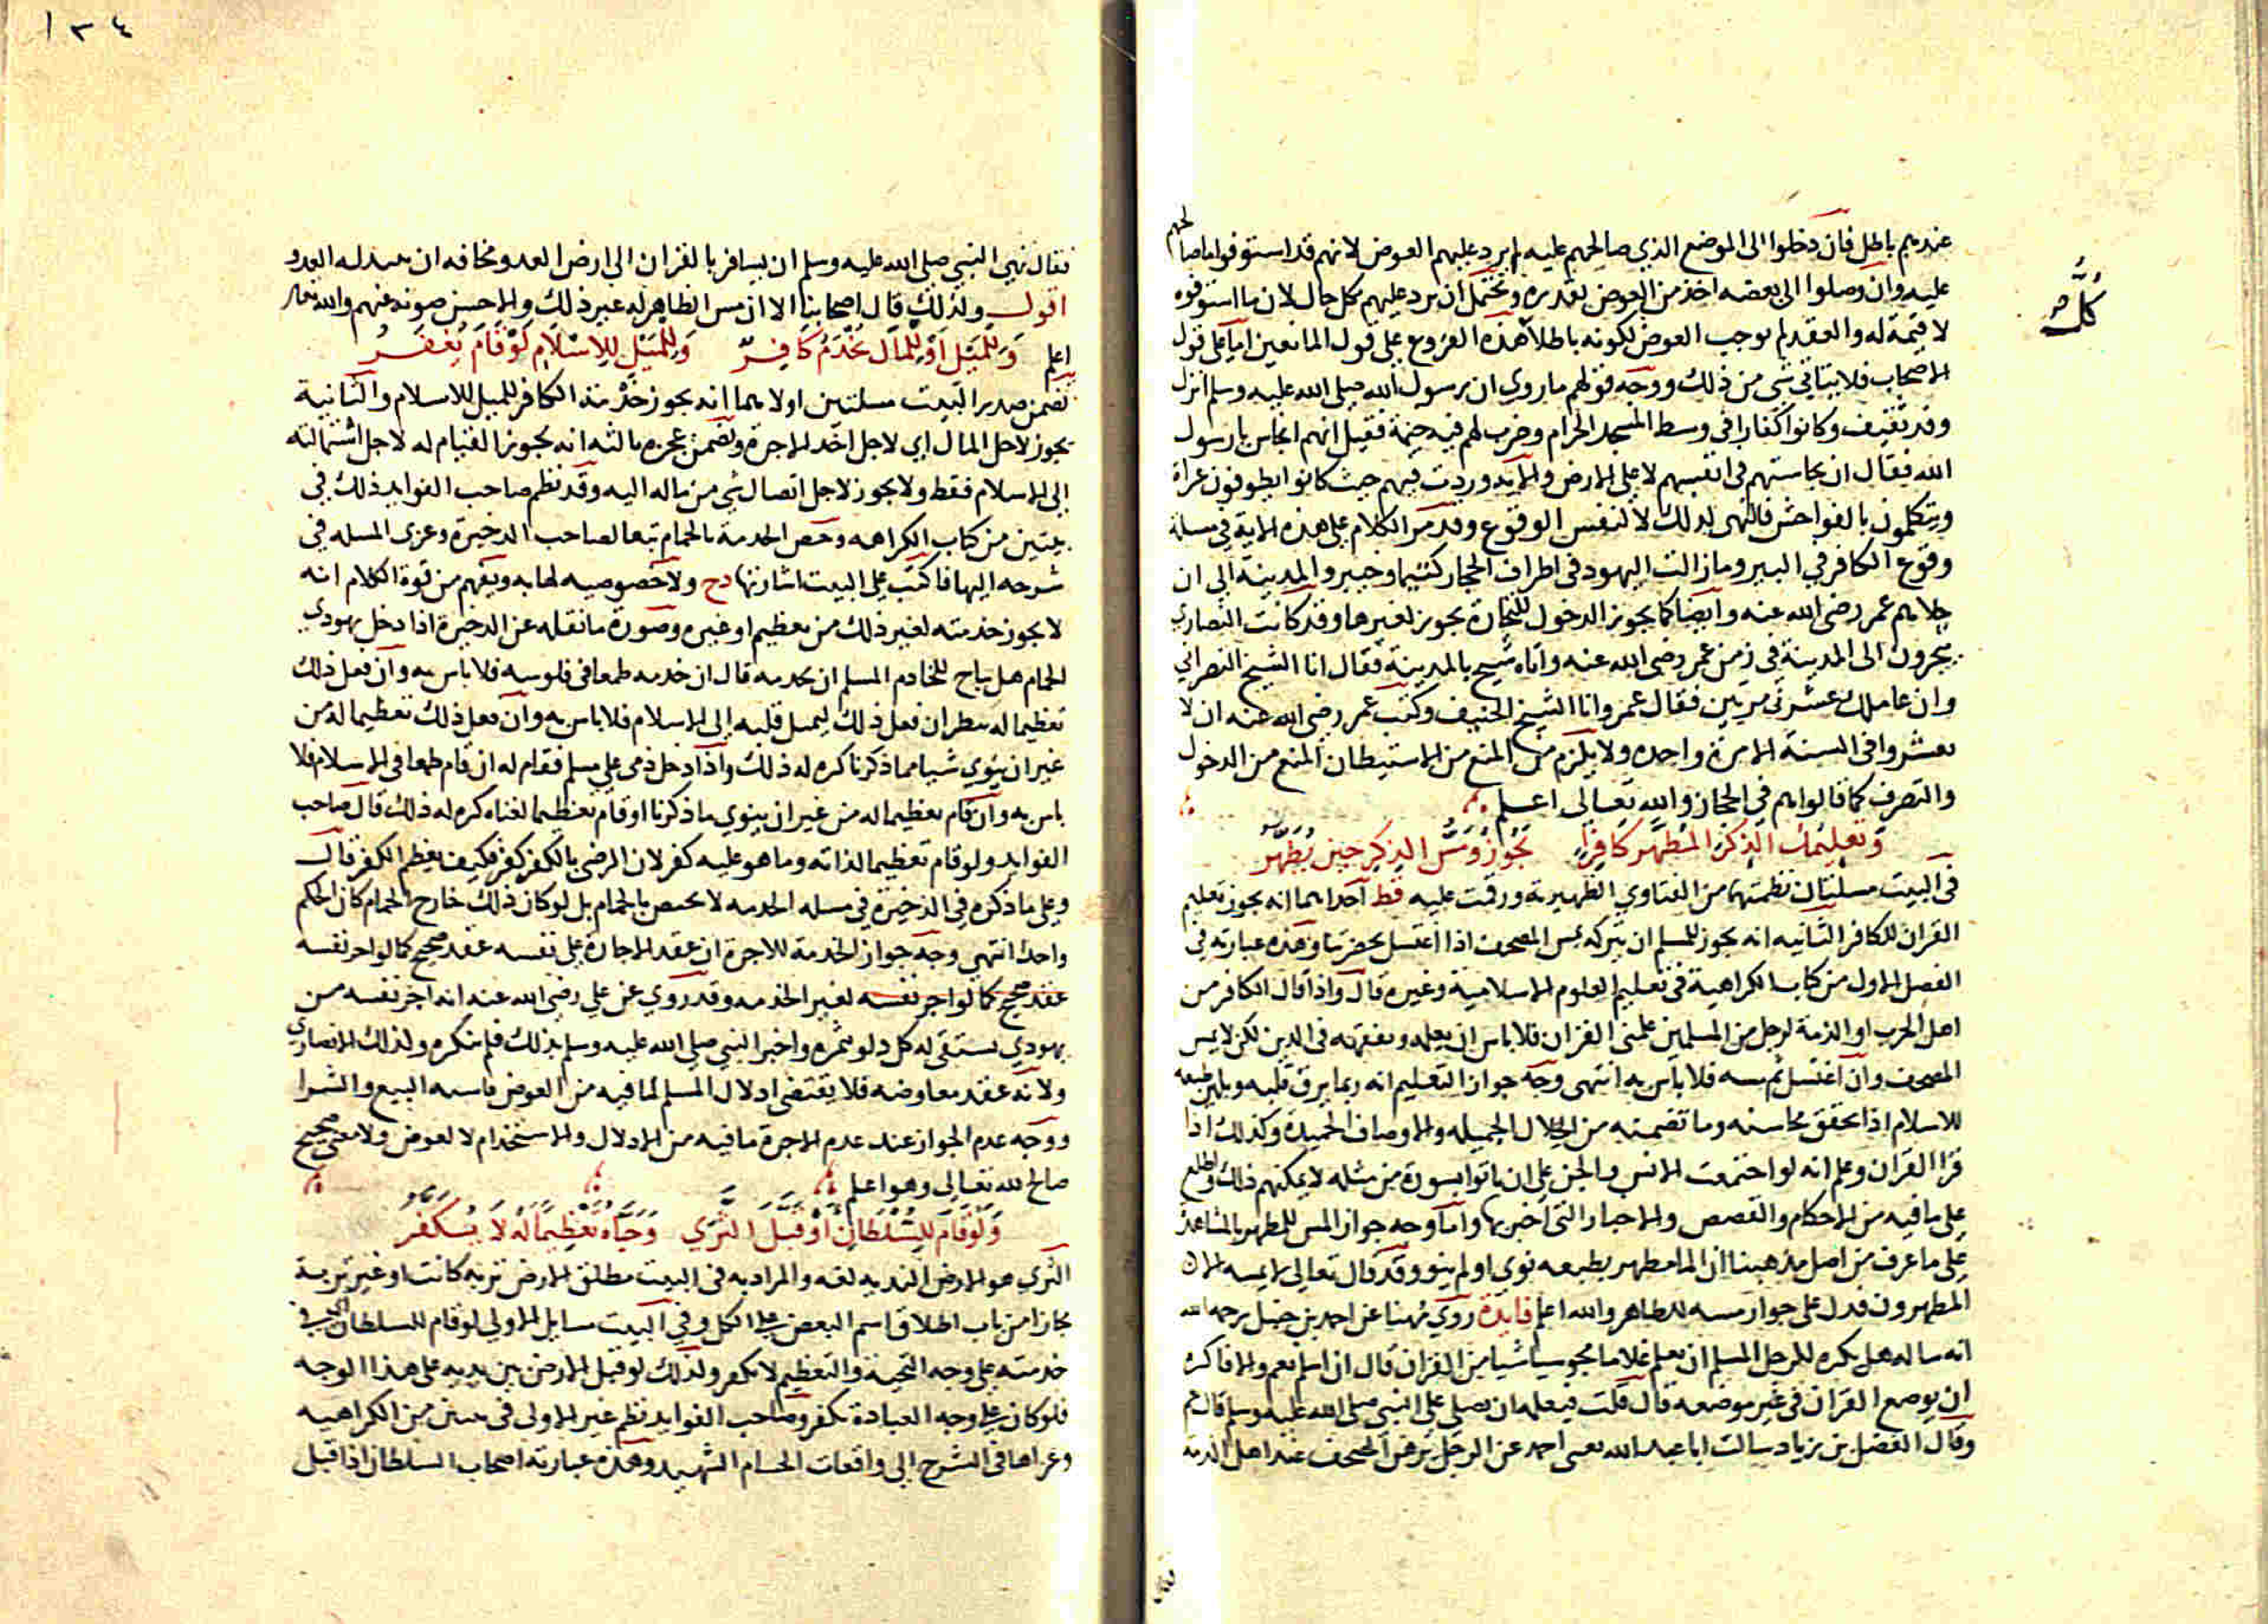 عندهم باطل فان دخلوا الى الموضع الذي صالحهم عليه لم يرد عليهم العوض لانهم قد استوفوا ما صالحهم
عليه وان وصلوا الى بعضه اخذ من العوض بقدره ويحتمل ان يرد عليهم بكل حال لان ما استوفوه
لا قيمة له والعقد لم يوجب العوض لكونه باطلا هذه الفروع على قول المانعين اما على قول
الاصحاب فلا يتاتى شي من ذلك ووجه قولهم ما روي ان رسول الله صلى الله عليه وسلم انزل
وفد ثقيف وكانوا كفارا في وسط المسجد الحرام وضرب لهم فيه خيمة فقيل انهم انجاس يا رسول
الله فقال ان نجاستهم في انفسهم لا على الارض والاية وردت فيهم حيث كانوا يطوفون عراة
ويتكلمون بالفواحش فالنهى لذلك لا لنفس الوقوع وقد مر الكلام على هذه الاية في مسلة
وقوع الكافر في البير وما زالت اليهود في اطراف الحجاز كتيما وخيبر والمدينة الى ان
جلاهم عمر رضى الله عنه وايضا كما يجوز الدخول للتجارة يجوز لغيرها وقد كانت النصارى
يتجرون الى المدينة في زمن عمر رضى الله عنه واتاه شيخ بالمدينة فقال انا الشيخ النصراني
وان عاملك عشرني مرتين فقال عمر وانا الشيخ الحنيف وكتب عمر رضى الله عنه ان لا
تعشروا في السنة الا مرة واحدة ولا يلزم من المنع من الاستيطان المنع من الدخول
والتصرف كما قالوا هم في الحجاز والله تعالى اعلم
وتعليمك الذكر المطهر كافرا يجوز ومس الذكر حين يطهر
في البيت مسلتان نظمتهما من الفتاوي الظهيرية ورقمت عليه قط احداهما انه يجوز تعليم
القران للكافر الثانيه انه يجوز للمسلم ان يتركه يمس المصحف اذا اغتسل بحضرتنا وهذه عبارته في
الفصل الاول من كتاب الكراهية في تعليم العلوم الاسلامية وغيره قال واذا قال الكافر من
اهل الحرب او الذمة لرجل من المسلمين علمنى القران فلا باس ان يعلمه ويفقهه في الدين لكن لا يمس
المصحف وان اغتسل ثم مسه فلا باس به انتهى وجه جواز التعليم انه ربما يرق قلبه ويلين طبعه
للاسلام اذا تحقق محاسنه وما تضمنه من الخلال الجميله والاوصاف الحميدة وكذلك اذا
قرا القران وعلم انه لو اجتمعت الانس والجن على ان ياتوا بسورة من مثله لا يمكنهم ذلك واطلع
على ما فيه من الاحكام والقصص والاخبار التى اخبر بها واما وجه جواز المس للطهر بالمشاهدة
على ما عرف من اصل مذهبنا ان الما مطهر بطبعه نوى او لم ينو وقد قال تعالى لا يمسه الا
المطهرون فدل على جواز مسه للطاهر والله اعلم فايدة روي مهنا عن احمد بن حنبل رحمه الله
انه ساله هل يكره للرجل المسلم ان يعلم غلاما مجوسيا شيا من القران قال ان اسلم نعم والا فاكره
ان يوضع القران في غير موضعه قال قلت فيعلمه ان يصلى على النبي صلى الله عليه وسلم قال نعم
وقال الفضل بن زياد سالت ابا عبد الله يعنى احمد عن الرجل يرهن المصحف عند اهل الذمة
كل
١٣٤
فقال نهى النبي صلى الله عليه وسلم ان يسافر بالقران الى ارض العدو مخافه ان يناله العدو
اقول ولذلك قال اصحابنا الا ان مس الظاهر له غير ذلك والاحسن صونه عنهم والله تعالى
اعلم وللميل او للمال يخدم كافر وللميل للاسلام لو قام يغفر
تضمن صدر البيت مسلتين اولاهما انه يجوز خدمة الكافر للميل للاسلام والثانية
يجوز لاجل المال اي لاجل اخذ الاجرة وتضمن عجزه ثالثه انه يجوز القيام له لاجل استمالته
الى الاسلام فقط ولا يجوز لاجل اتصال شي من ماله اليه وقد نظم صاحب الفوايد ذلك في
بيتين من كتاب الكراهه وخص الخدمة بالحمام تبعا لصاحب الدخيرة وعزى المسله في
شرحه اليها فاكتب على البيت اشارتها دح ولا خصوصيه لها به ويفهم من قوة الكلام انه
لا يجوز خدمته لغير ذلك من تعظيم او غيره وصورة ما نقله عن الدخيرة اذا دخل يهودي
الحمام هل يباح للخادم المسلم ان يخدمه قال ان خدمه طمعا في فلوسه فلا باس به وان فعل ذلك
تعظيما له ينظر ان فعل ذلك ليميل قلبه الى الاسلام فلا باس به وان فعل ذلك تعظيما له من
غير ان ينوي شيا مما ذكرنا كره له ذلك واذا دخل ذمى على مسلم فقام له ان قام طمعا في الاسلام فلا
باس به وان قام تعظيما له من غير ان ينوي ما ذكرنا او قام تعظيما لغناه كره له ذلك قال صاحب
الفوايد ولو قام تعظيما لذاته وما هو عليه كفر لان الرضى بالكفر كفر فكيف بعظم الكفر قال
وعلى ما ذكره في الذخيرة في مسله الخدمه لا يختص بالحمام بل لو كان ذلك خارج الحمام كان الحكم
واحدا انتهى وجه جواز الخدمة للاجرة ان عقد الاجارة على نفسه عقد صحيح كما لو اجر نفسه
عقد صحيح كما لو اجر نفسه لغير الخدمه وقد روي عن علي رضى الله عنه انه اجر نفسه من
يهودي يستقى له كل دلو بتمرة واخبر النبي صلى الله عليه وسلم بذلك فلم ينكره ولذلك الانصاري
ولانه عقد معاوضه فلا يقتضى اذلال المسلم لما فيه من العوض فاشبه البيع والشرا
ووجه عدم الجواز عند عدم الاجرة ما فيه من الاذلال والاستخدام لا لعوض ولا معنى صحيح
صالح لله تعالى وهو اعلم
ولو قام للسلطان او قبل الثرى وحياه تعظيما له لا يكفر
الثري هو الارض الندية لغه والمراد به في البيت مطلق الارض تربه كانت او غير تربة
مجازا من باب اطلاق اسم البعض على الكل وفي البيت مسايل الاولى لو قام للسلطان اي في
خدمته على وجه التحية والتعظيم لا يكفر ولذلك لو قبل الارض بين يديه على هذا الوجه
فلو كان على وجه العبادة يكفر وصاحب الفوايد نظم غير الاولى في بيتين من الكراهيه
وعزاها في الشرح الى واقعات الحسام الشهيد وهذه عبارته اصحاب السلطان اذا قبل